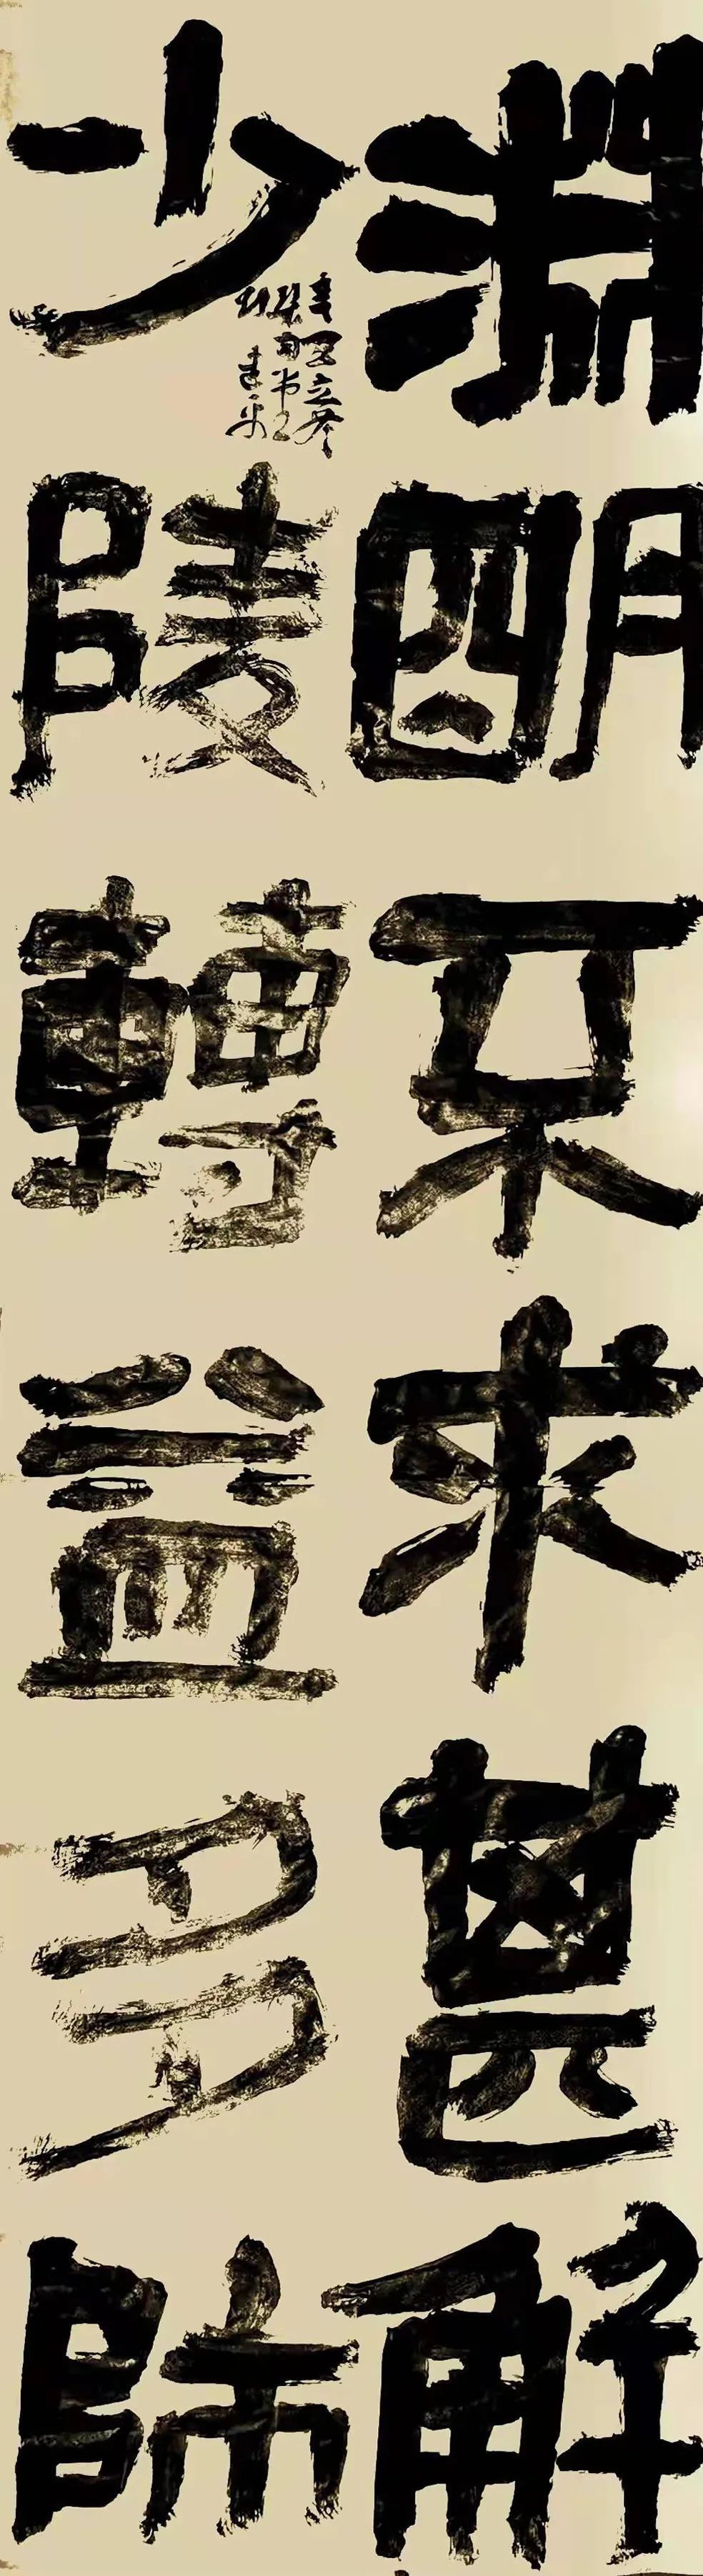 淵明不求甚解
少陵轉益多師